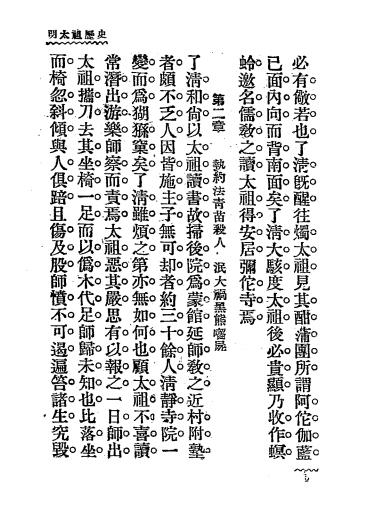 明太祖歷史
必有敵若也了淸旣醒往燭太祖見其酣蒲團所謂阿陀伽藍
已面內向而背南面矣了淸大駭度太祖後必貴顯乃收作螟
蛉邀名儒敎之讀太祖得安居彌佗寺焉
第二章 執約法靑苗殺人．泯大禍黑熊嚙屍
了淸和尙以太祖讀書故掃後院爲蒙館延師敎之近村附塾
者頗不乏人因皆施主子無可却者約三十餘人淸靜寺院一
變而爲猢猻窠矣了淸雖煩之第亦無如何也顧太祖不喜讀
常潛出游樂師察而責焉太祖惡其嚴思有以報之一日師出
太祖攜刀去其坐椅一足而以僞木代足師歸未知也比落坐
而椅忽斜傾與人俱踣且傷及股師憤不可遏遍笞諸生究毀